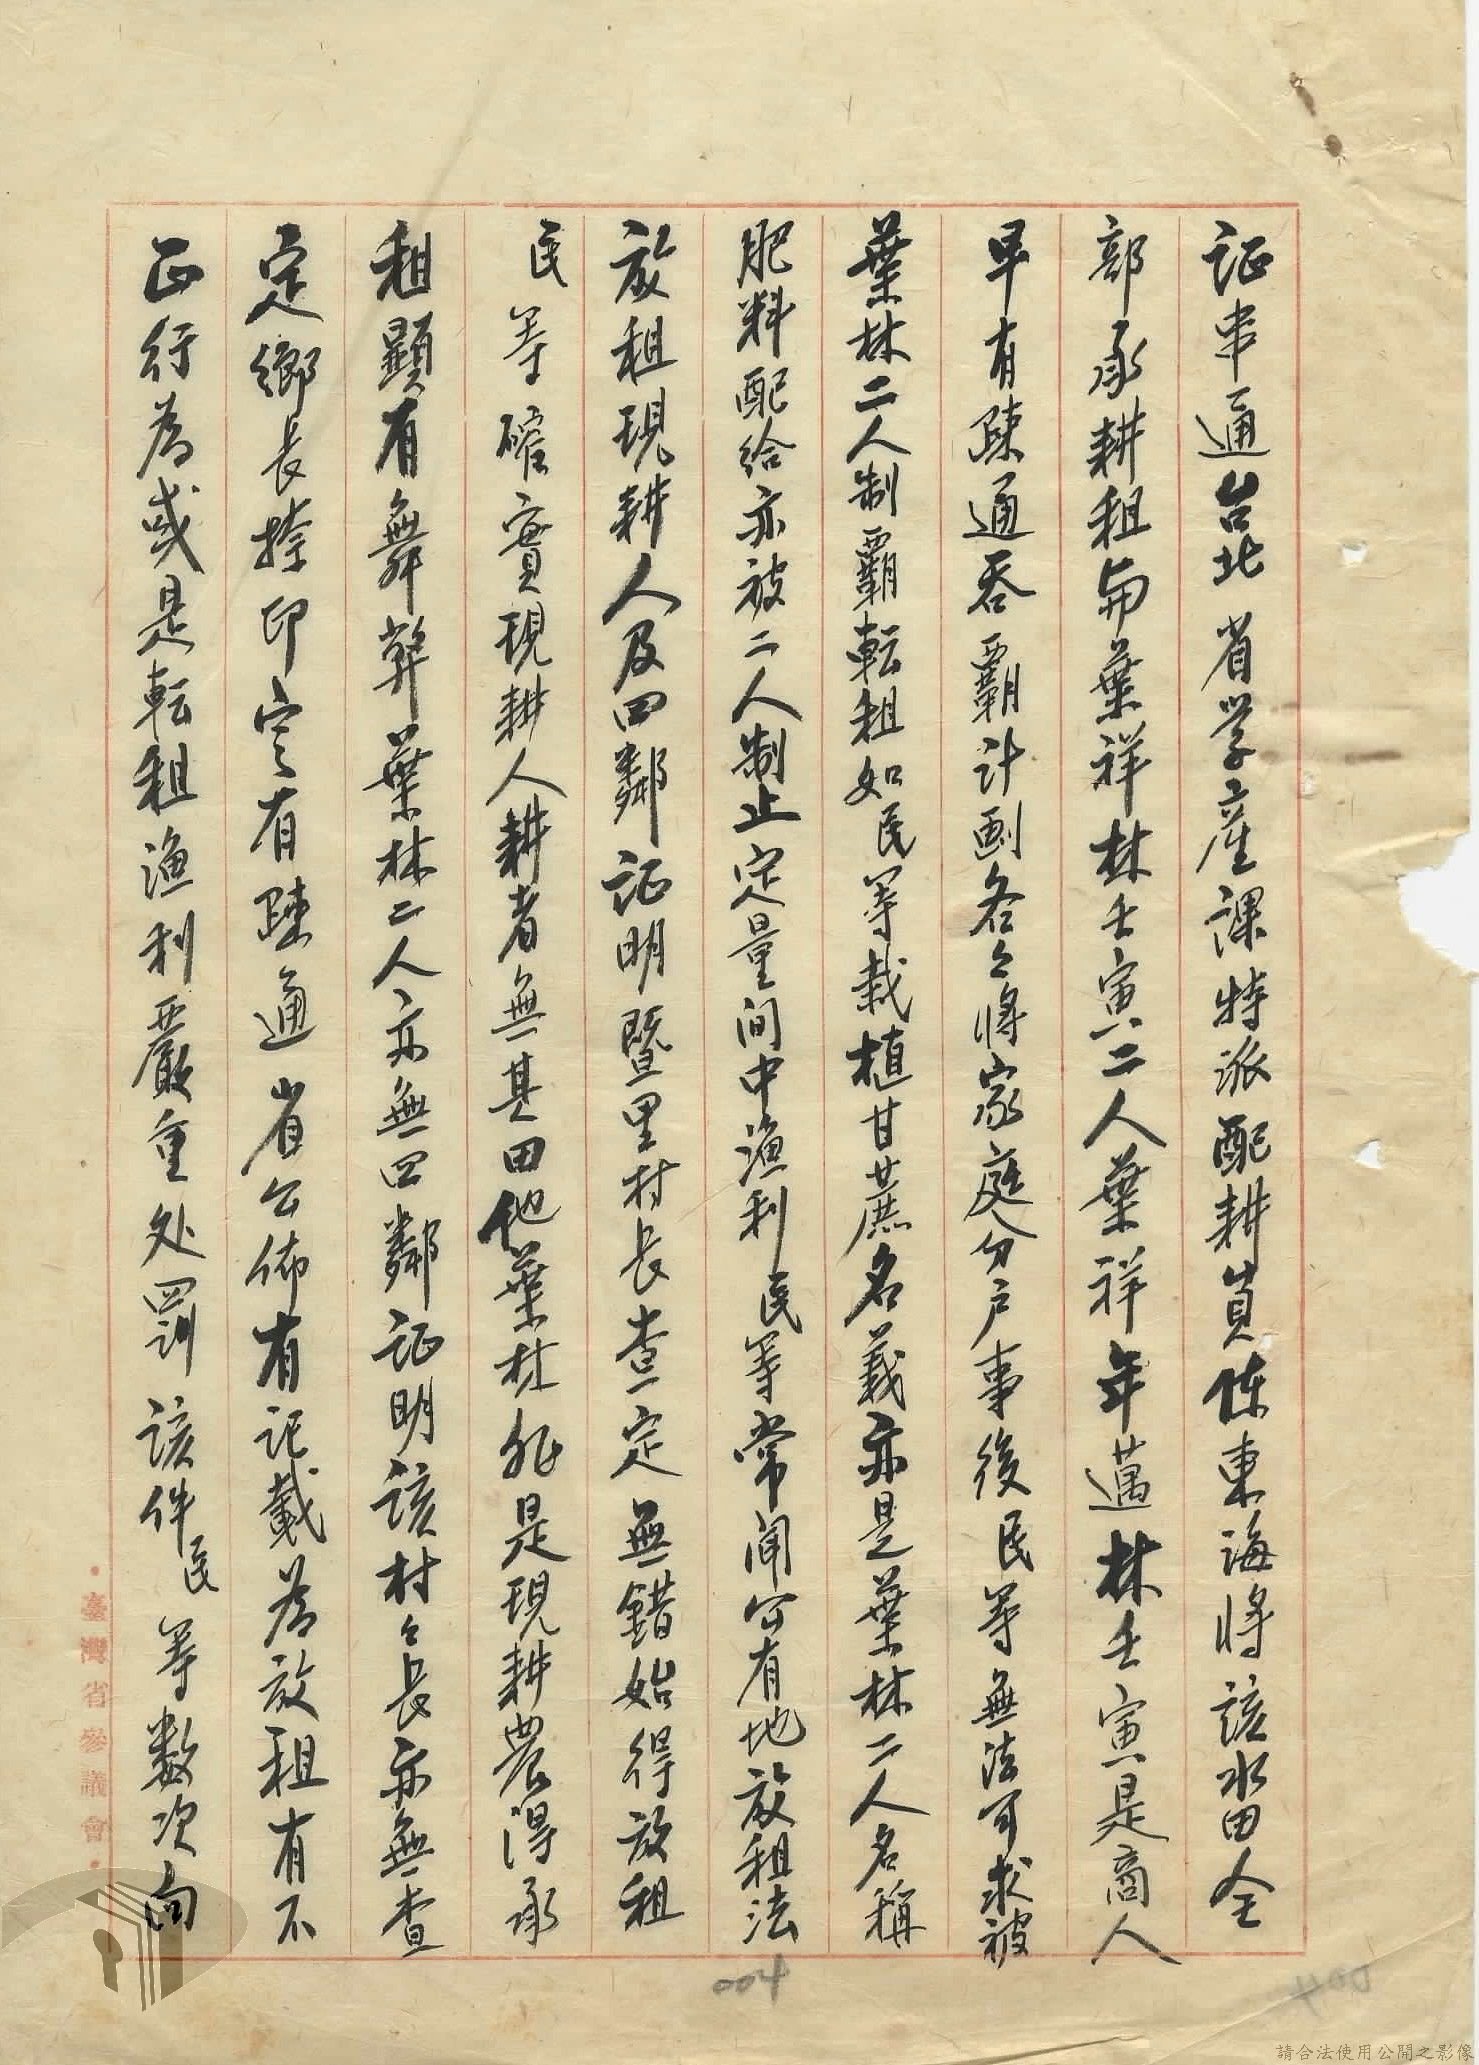 证串通台北省学產課特派配耕員陈東海將該水田全
部承耕租與葉祥林壬寅二人葉祥年邁林壬寅是商人
早有疎通吞霸計劃各々將家庭分户事後民等無法可求被
葉林二人制霸転租如民等栽植甘蔗名義亦是葉林二人名稱
肥料配給亦被二人制止定量间中漁利民等常闻公有地放租法
放租現耕人及四鄰证明暨里村長查定無錯始得放租
民等確實現耕人耕者無其田他葉林非是現耕農得承
租顕有舞弊葉林二人亦無四鄰证明該村々長亦無查
定鄉長捺印定有疎通省公佈有記載為放租有不
正行為或是転租漁利嚴重处罰該件民等数次向
臺灣省參議會
004
004
請合法使用公開之影像